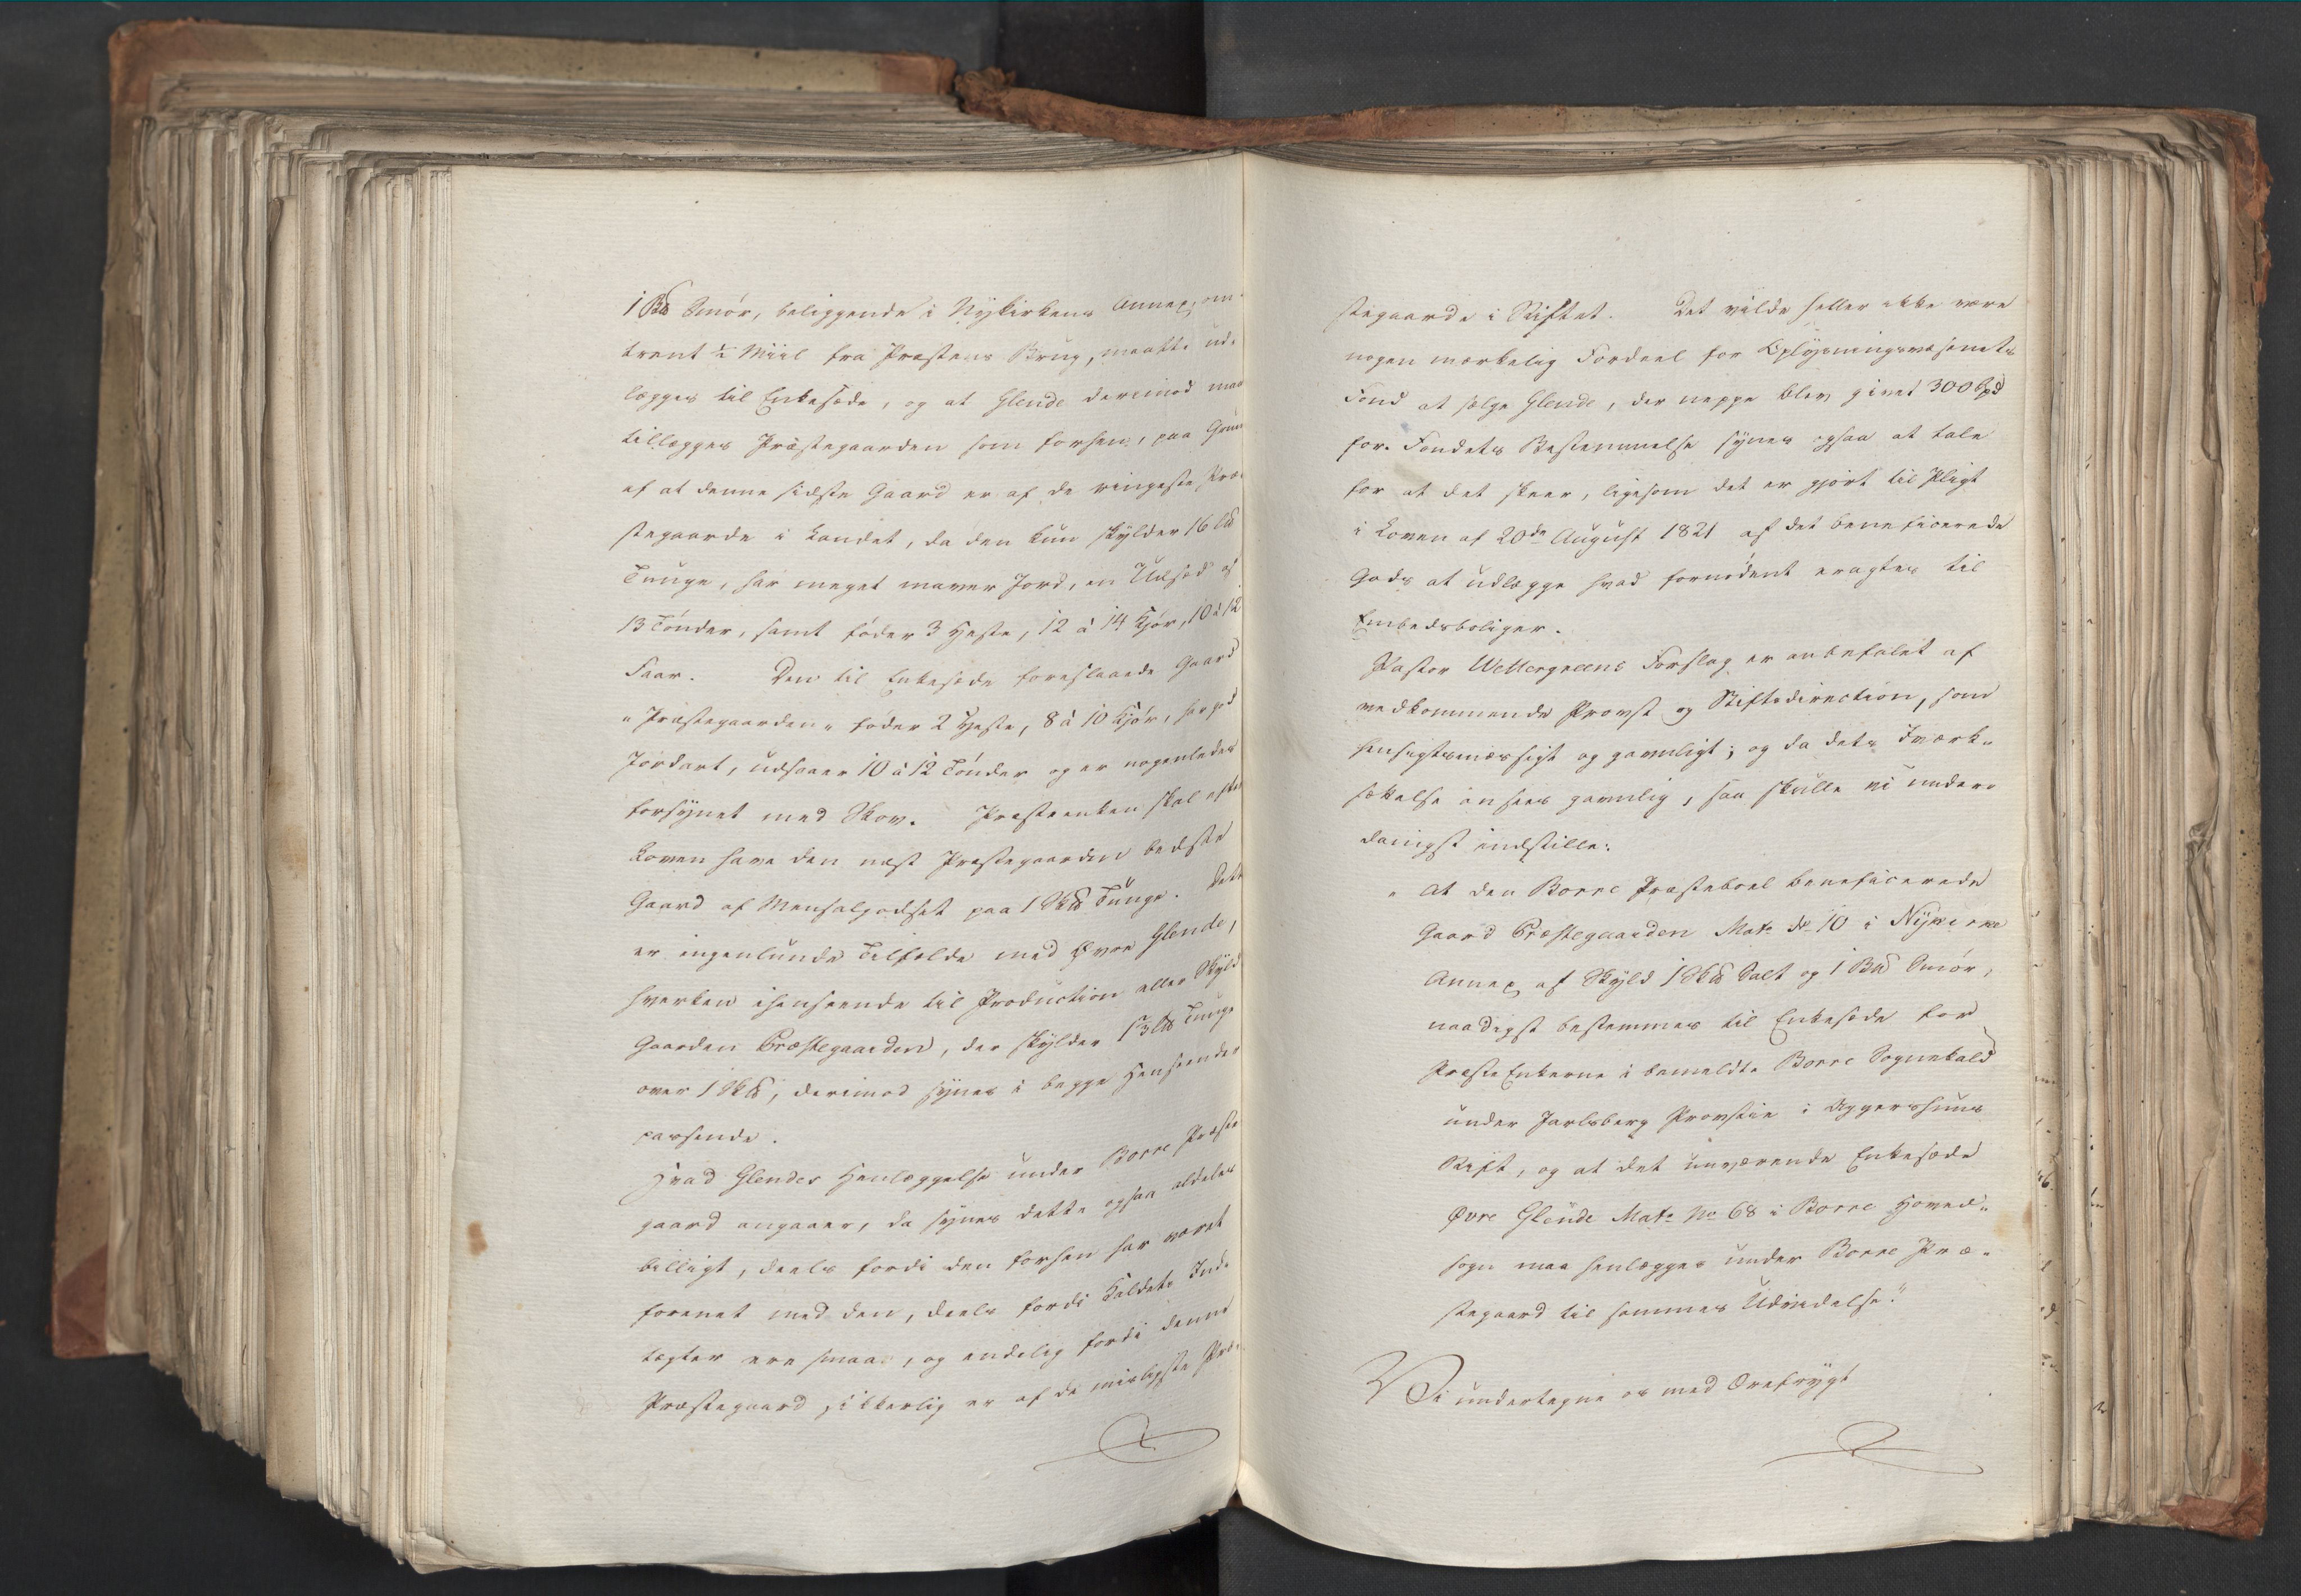 1 Bd Smör, beliggende i Nykirkens Annex, om-
trent ½ Miil fra Præstens Brug, maatte ud-
lægges til Enkesæde, og at Glende derimod maa
tillægges Præstegaarden som forhen, paa Grund
af at denne sidste Gaard er af de ringeste Præ-
stegaarde i Landet, da den kun skylder 16 Ld
Tunge, har meget maver Jord, en Udsæd af
13 Tønder, samt føder 3 Heste, 12 à 14 Kjør, 10 à 12
Faar. Den til Enkesæde foreslaaede Gaard
"Præstegaarden" føder 2 Heste, 8 à 10 Kjør, har god
Jordart, udsaaer 10 à 12 Tønder og er nogenledes
forsynet med Skov. Præsteenken skal efter
Loven have den næst Præstegaarden bedste
Gaard af Mensalgodset paa 1 Skd Tunge. Dette
er ingenlunde Tilfælde med Øvre Glende,
hverken ihenseende til Production eller Skyld
Gaarden Præstegaarden, der skylder Ld Tunge
over 1 Skd, derimod synes i begge Henseender
passende.
Hvad Glendes Henlæggelse under Borre Præste
gaard angaaer, da synes dette ogsaa aldeles
billigt, deels fordi den forhen har været
forenet med den, deels fordi Kaldets Ind-
tægter ere smaae, og endelig fordi denne
Præstegaard sikkerlig er af de misligste Præ-
stegaarde i Stiftet. Det vilde heller ikke være
nogen mærkelig Fordeel for Oplysningsvæsenets
Fond at sælge Glende, der neppe blev givet 300 Spd
for. Fondets Bestemmelse synes ogsaa at tale
for at det skeer, ligesom det er gjort til Pligt
i Loven af 20de August 1821 af det beneficerede
Gods at udlægge hvad fornødent eragtes til
Embedsboliger.
Pastor Wettergreens Forslag er anbefalet af
vedkommende Provst og Stiftsdirection, som
hensigtsmæssigt og gavnligt; og da dets Iværk-
sættelse ansees gavnlig, saa skulle vi under-
danigst indstille:
"At den Borre Præsteboel beneficerede
Gaard Præstegaarden Mats No 10 i Nykirke
Annex af Skyld 1 Skd Salt og 1 Bd Smör,
naadigst bestemmes til Enkesæde for
PræsteEnkerne i bemeldte Borre Sognekald
under Jarlsberg Provstie i Aggershuus
Stift, og at det nuværende Enkesæde
Øvre Glende Mats No 68 i Borre Hoved-
sogn maa henlægges under Borre Præ-
stegaard til sammes Udvidelse."
Vi undertegne os med Ærefrygt